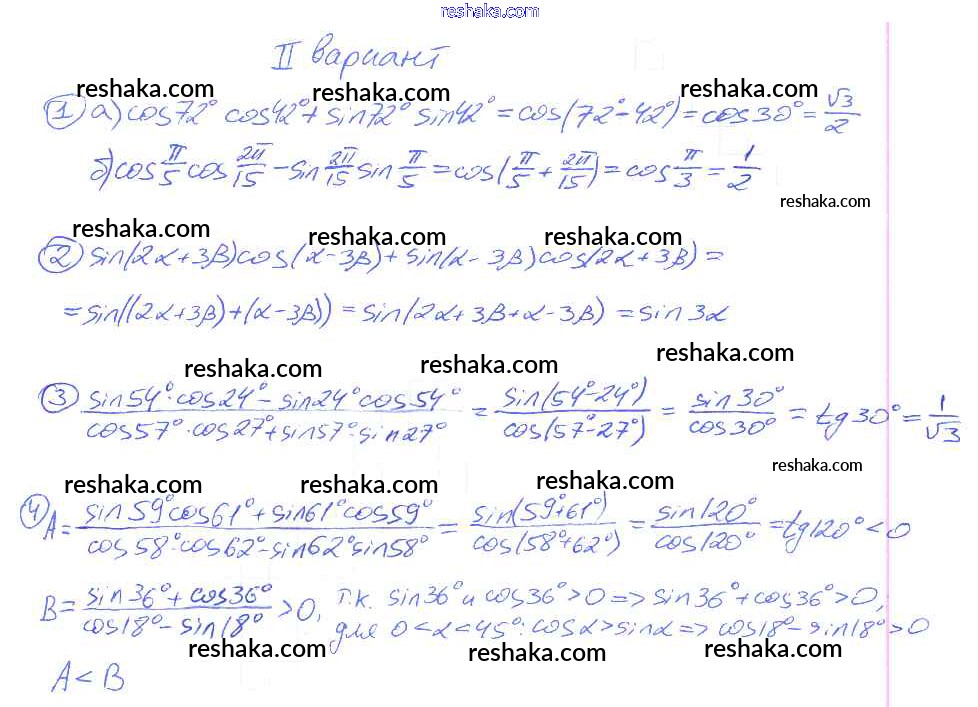 reshaka.com
II вариант
reshaka.com reshaka.com reshaka.com reshaka.com
① а) cos72° cos42° + sin72° sin42° = cos(72° - 42°) = cos30° = √3/2
б) cos π/5 cos 2π/15 - sin 2π/15 sin π/5 = cos(π/5 + 2π/15) = cos π/3 = 1/2
reshaka.com
reshaka.com reshaka.com reshaka.com
② sin(2α+3β)cos(α-3β) + sin(α-3β)cos(2α+3β) =
= sin((2α+3β)+(α-3β)) = sin(2α+3β+α-3β) = sin3α
reshaka.com reshaka.com reshaka.com
③ (sin54°·cos24° - sin24°cos54°)/(cos57°·cos27° + sin57°·sin27°) = sin(54°-24°)/cos(57°-27°) = sin30°/cos30° = tg30° = 1/√3
reshaka.com
reshaka.com reshaka.com reshaka.com
④ A = (sin59°cos61° + sin61°cos59°)/(cos58°·cos62° - sin62°sin58°) = sin(59°+61°)/cos(58°+62°) = sin120°/cos120° = tg120° < 0
B = (sin36° + cos36°)/(cos18° - sin18°) > 0, т.к. sin36° и cos36° > 0 => sin36° + cos36° > 0,
для 0 < α < 45°: cosα > sinα => cos18° - sin18° > 0
reshaka.com reshaka.com reshaka.com
A < B